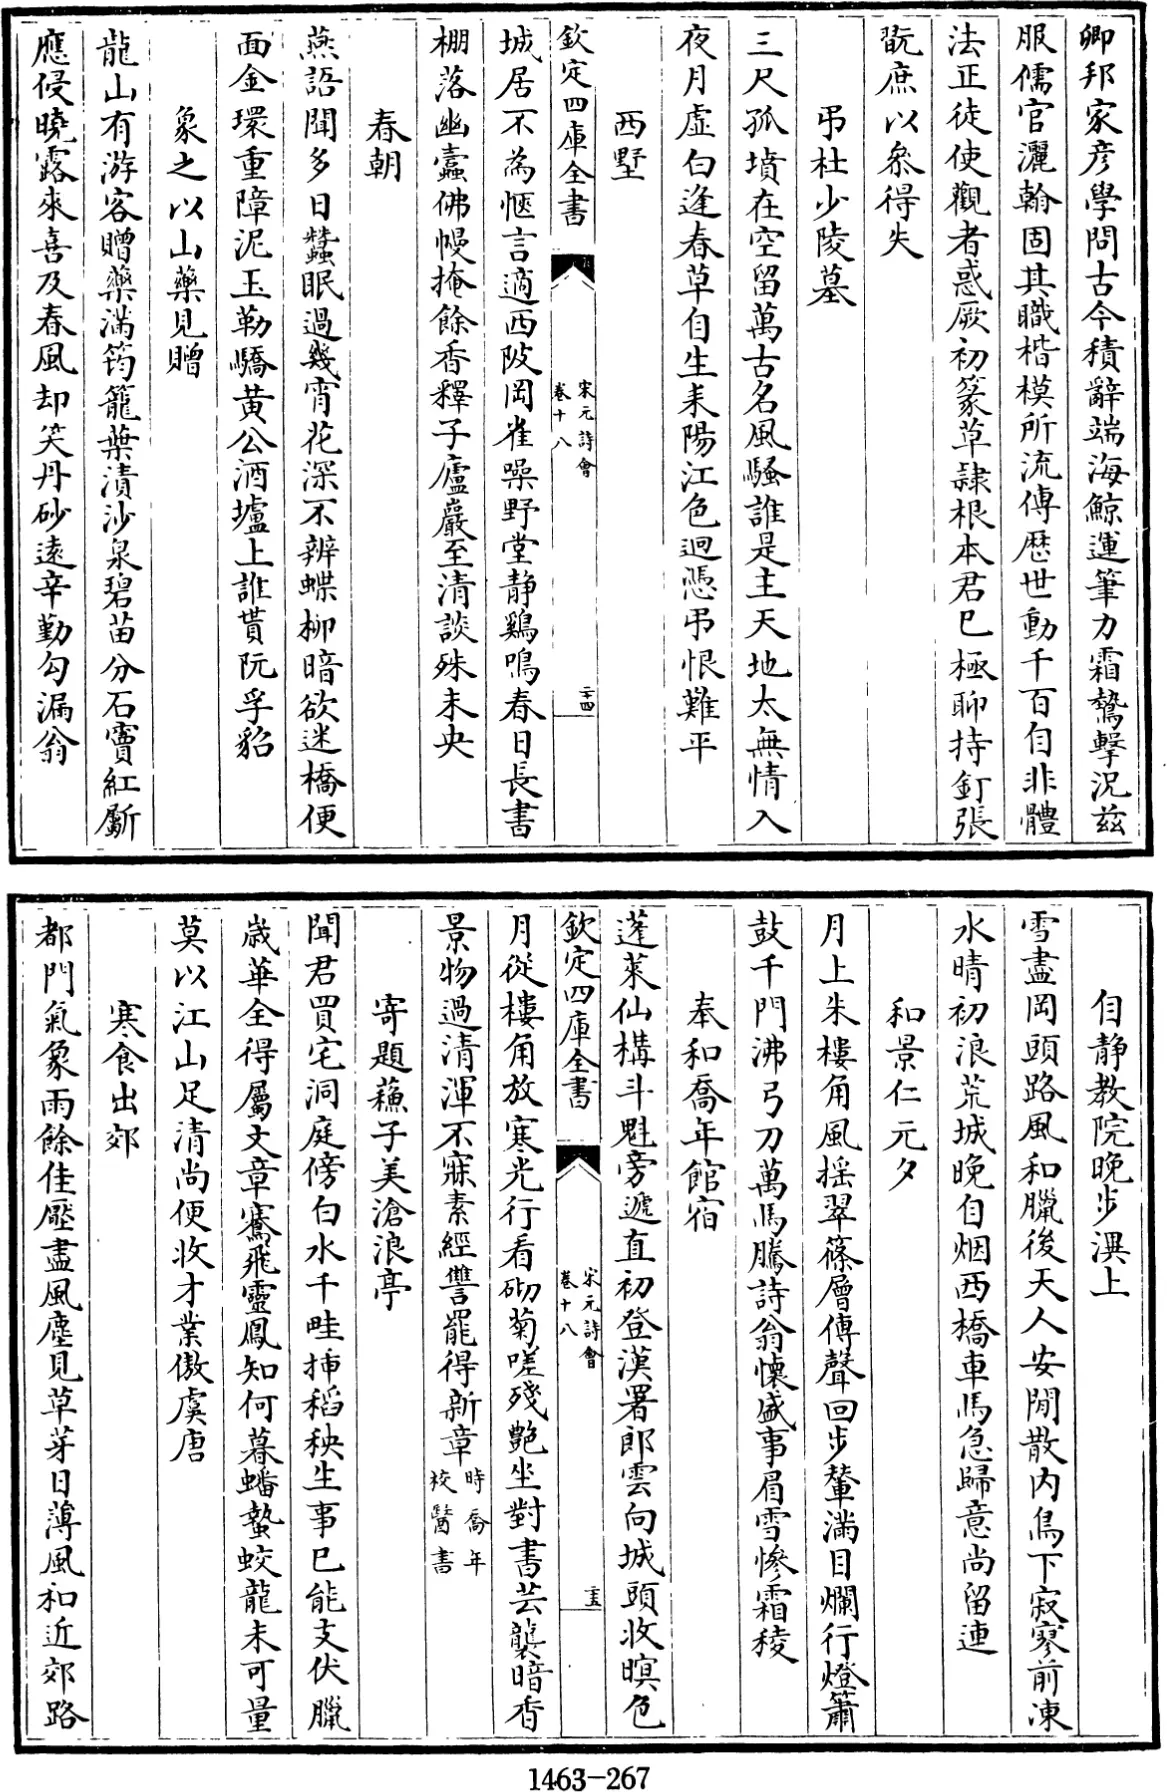 卿邦家彦學問古今積辭端海鯨運筆力霜鷙擊況兹
服儒官灑翰固其職楷模所流傳歴世動千百自非體
法正徒使觀者惑厥初篆草隷根本君已極聊持釘張
翫庶以叅得失
弔杜少陵墓
三尺孤墳在空留萬古名風騷誰是主天地太無情入
夜月虛白逢春草自生耒陽江色逈憑弔恨難平
西墅
欽定四庫全書
宋元詩會
卷十八
二十四
城居不為愜言適西陂岡雀噪野堂静鷄鳴春日長書
棚落幽蠧佛幔掩餘香釋子廬巖至清談殊未央
春朝
燕語聞多日蠶眠過幾宵花深不辨蝶柳暗欲迷橋便
面金環重障泥玉勒驕黄公酒壚上誰貰阮孚貂
象之以山藥見贈
龍山有游客贈藥滿筠籠葉漬沙泉碧苗分石竇紅斸
應侵曉露來喜及春風却笑丹砂逺辛勤勾漏翁
自静教院晚步淠上
雪盡岡頭路風和臘後天人安閒散内鳥下寂寥前凍
水晴初浪荒城晚自烟西橋車馬急歸意尚留連
和景仁元夕
月上朱樓角風揺翠篠層傳聲回步輦滿目爛行燈簫
鼓千門沸弓刀萬馬騰詩翁懐盛事眉雪慘霜稜
奉和喬年館宿
蓬萊仙構斗魁旁遞直初登漢署郎雲向城頭收暝色
欽定四庫全書
宋元詩會
卷十八
二十五
月從樓角放寒光行看砌菊嗟殘艶坐對書芸襲暗香
景物過清渾不寐素經讐罷得新章時喬年校醫書
寄題蘓子美滄浪亭
聞君買宅洞庭傍白水千畦挿稻秧生事已能支伏臘
歳華全得屬文章騫飛靈鳳知何暮蟠蟄蛟龍未可量
莫以江山足清尚便收才業傲虞唐
寒食出郊
都門氣象雨餘佳壓盡風塵見草芽日薄風和近郊路
1463-267